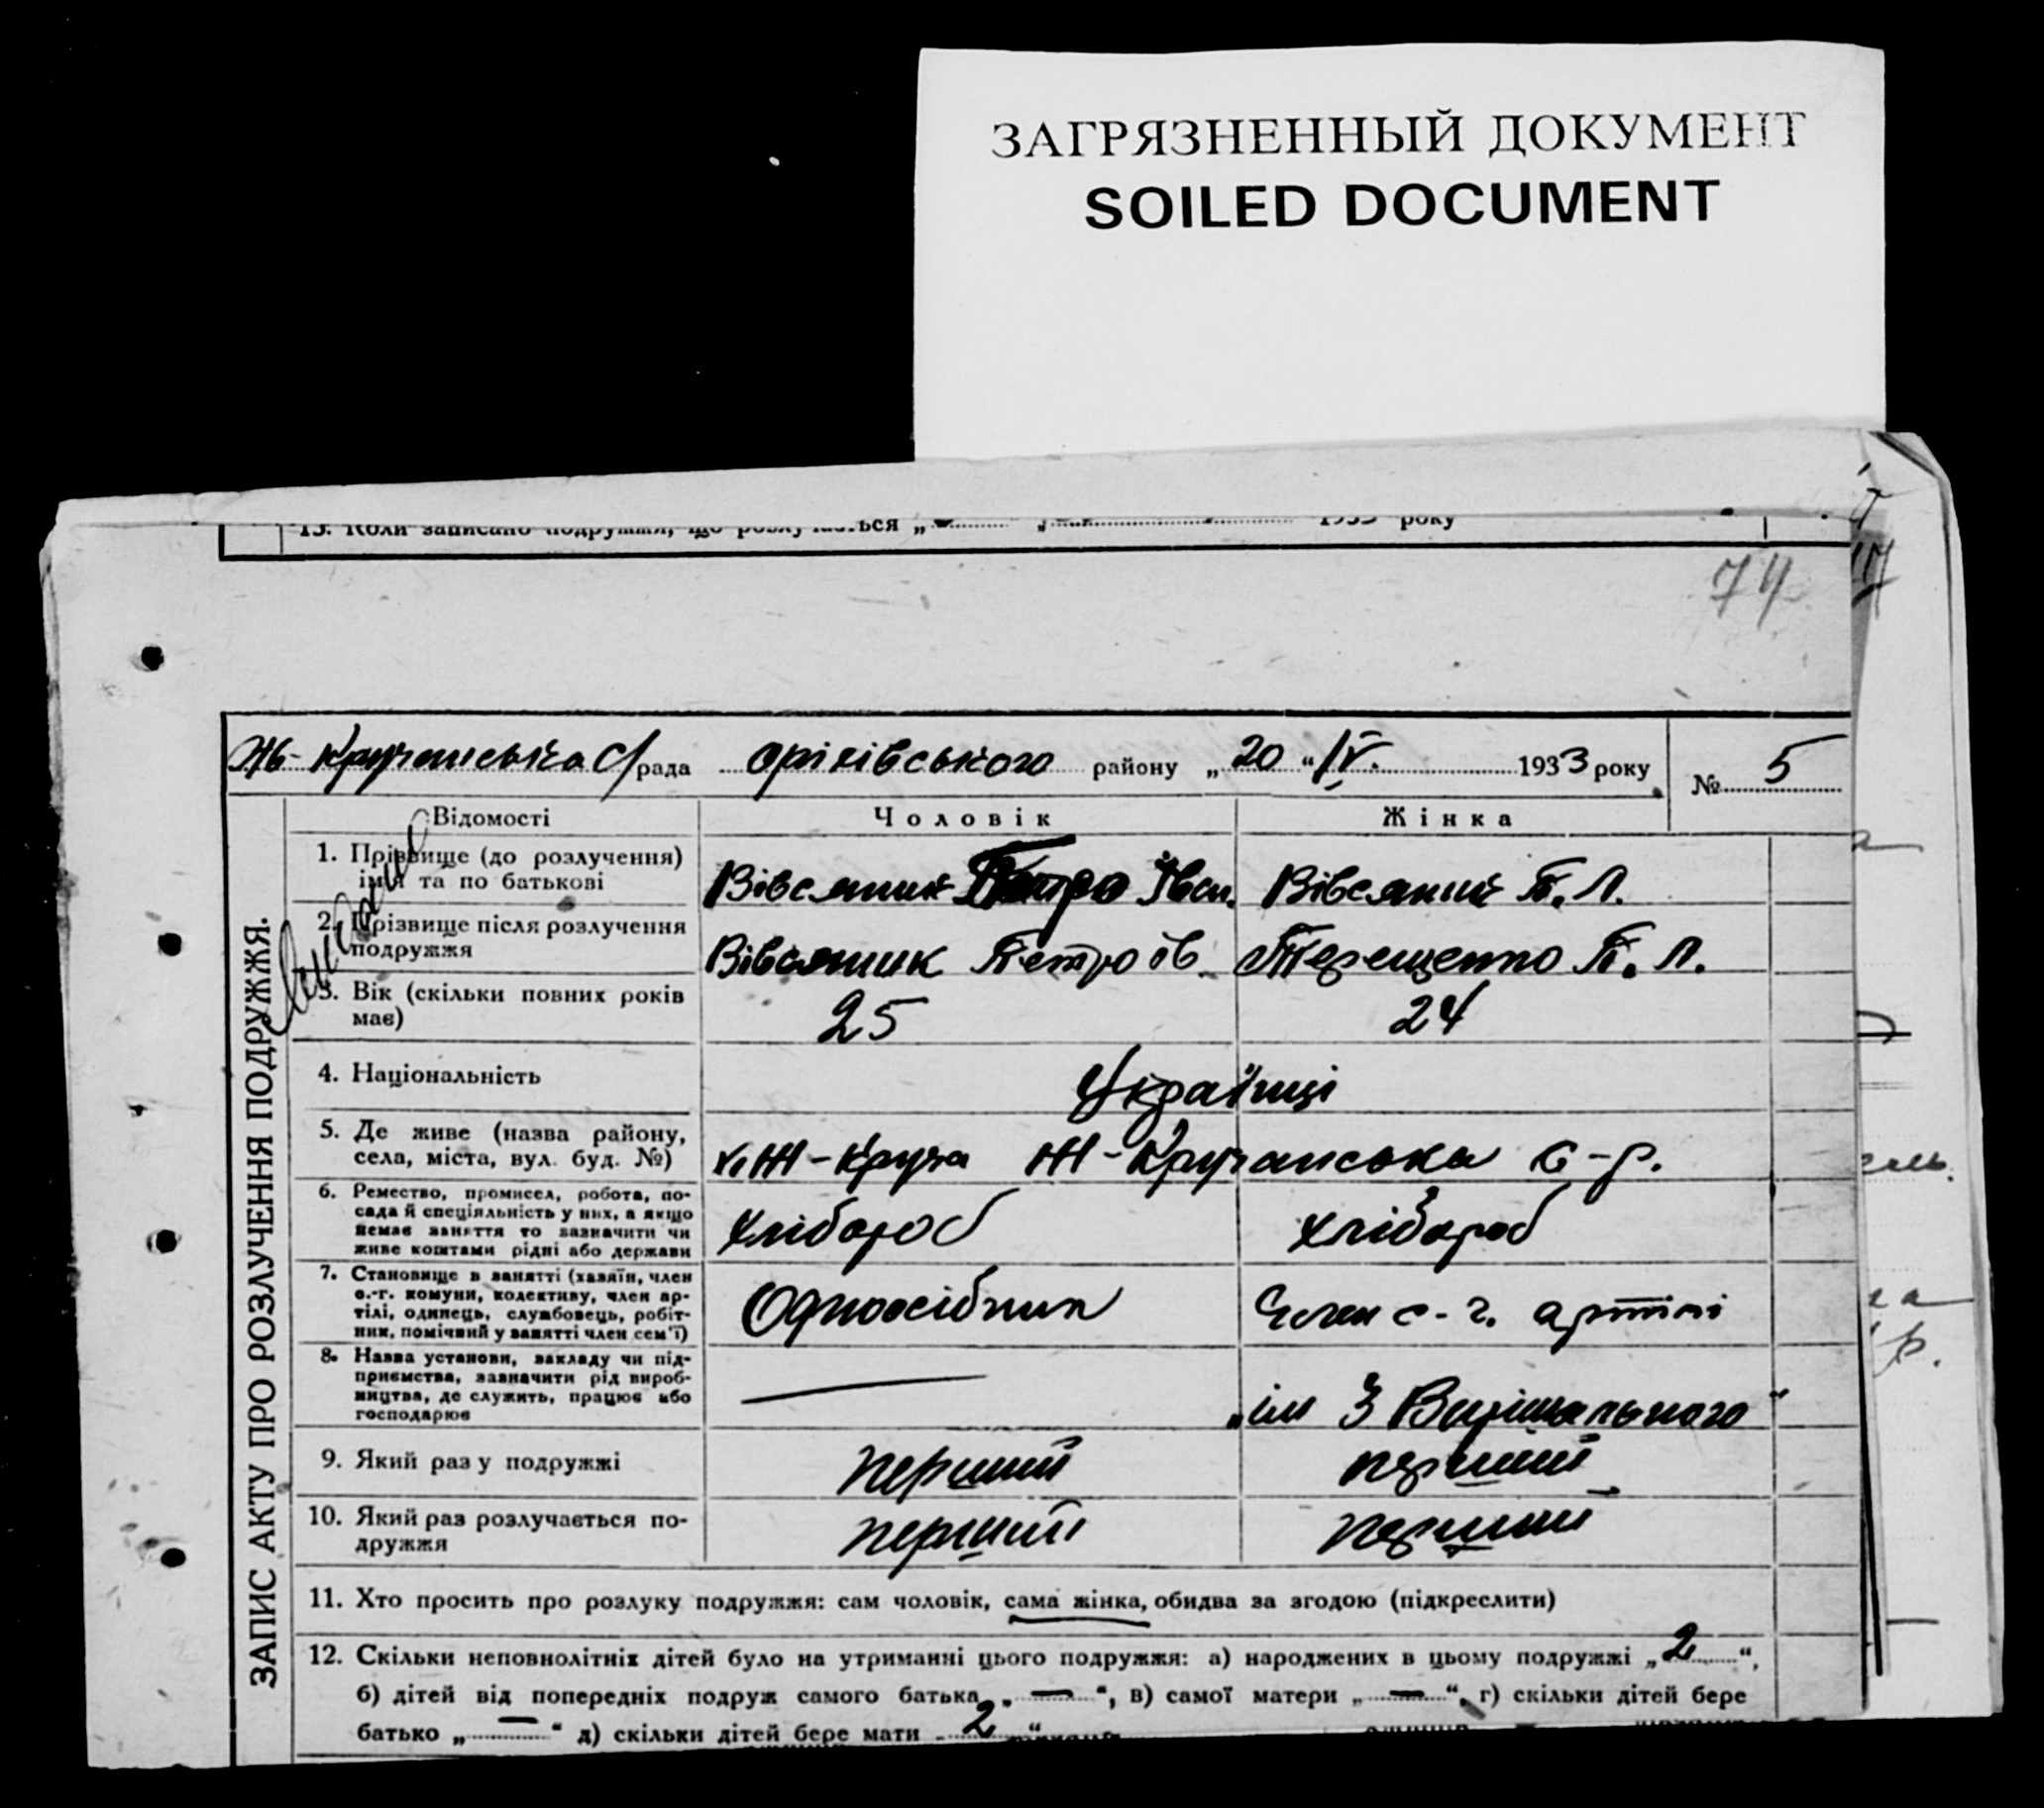 ЗАГРЯЗНЕННЫЙ ДОКУМЕНТ
SOILED DOCUMENT
13. Коли записано подружжя, що розлучається „ — “ 1933 року
74
Жв-Кручанська С/рада Оріхівського району „20“ IV. 1933 року № 5
ЗАПИС АКТУ ПРО РОЗЛУЧЕННЯ ПОДРУЖЖЯ.
Відомості Чоловік Жінка
1. Прізвище (до розлучення) ім'я та по батькові Вівсяник Петро Іван. Вівсяник П. Л.
2. Прізвище після розлучення подружжя Вівсяник Петро Ів. Терещенко П. Л.
3. Вік (скільки повних років має) 25 24
4. Національність Українці
5. Де живе (назва району, села, міста, вул. буд. №) х. Ж-Круча Ж-Кручанська с-р.
6. Ремество, промисел, робота, посада й спеціяльність у них, а якщо немає заняття то зазначити чи живе коштами рідні або держави хлібороб хлібороб
7. Становище в занятті (хазяїн, член с.-г. комуни, колективу, член артілі, одинець, службовець, робітник, помічний у занятті член сем'ї) Одноосібник Член с-г. артілі
8. Назва установи, закладу чи підприємства, зазначити рід виробництва, де служить, працює або господарює — „ім 3 Вирішального“
9. Який раз у подружжі перший перший
10. Який раз розлучається подружжя перший перший
11. Хто просить про розлуку подружжя: сам чоловік, сама жінка, обидва за згодою (підкреслити)
12. Скільки неповнолітніх дітей було на утриманні цього подружжя: а) народжених в цьому подружжі „2“,
б) дітей від попередніх подруж самого батька „ — “, в) самої матери „ — “, г) скільки дітей бере
батько „ — “ д) скільки дітей бере мати „2“